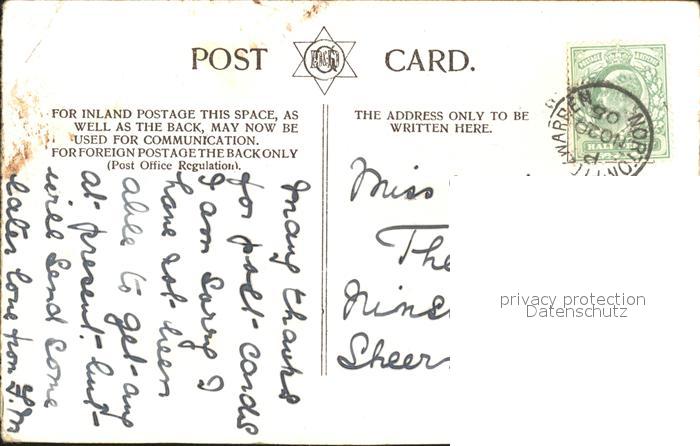 POST CARD.
FOR INLAND POSTAGE THIS SPACE, AS
WELL AS THE BACK, MAY NOW BE
USED FOR COMMUNICATION.
FOR FOREIGN POSTAGE THE BACK ONLY
(Post Office Regulation).
THE ADDRESS ONLY TO BE
WRITTEN HERE.
many thanks
for post-cards
I am sorry I
have not been
able to get any
at present but
will send some
later love from
Miss
The
privacy protection
Datenschutz